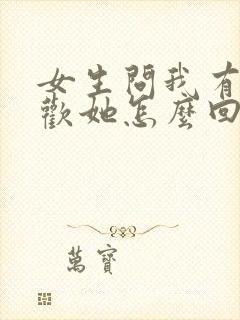 女生問我有
歡她怎麼回
萬寶